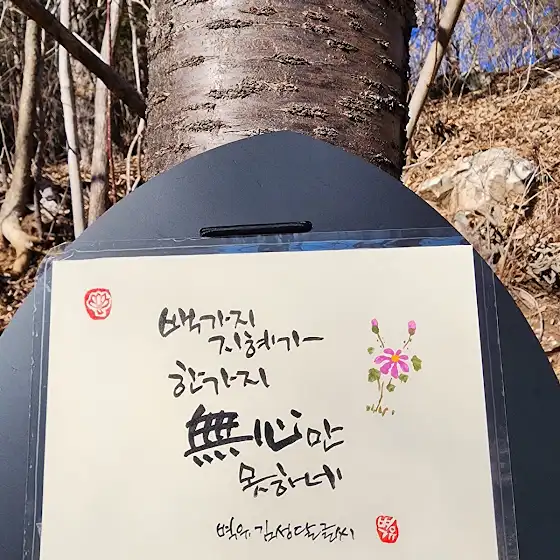 백가지
지혜가
한가지
無心만
못하네
벽유 김성달 글씨